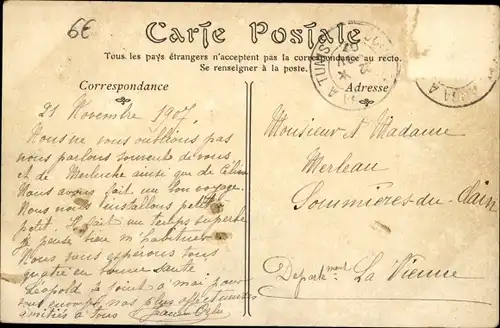 6€
Carte Postale
Tous les pays étrangers n'acceptent pas la correspondance au recto.
Se renseigner à la poste.
Correspondance
Adresse
21 Novembre 1907
Nous ne vous oublions pas
nous parlons souvent de vous
et de Merluche ainsi que de
Nous avons fait un bon voyage.
Nous nous installons petit à
petit. Il fait un temps superbe
je pense bien m'habituer
Nous vous espérons tous
quatre en bonne santé
Léopold se joint à moi pour
vous envoyer nos plus affectueuses
amitiés à tous Jeanne
Monsieur et Madame
Merleau
Sommières-du-Clain
Département La Vienne